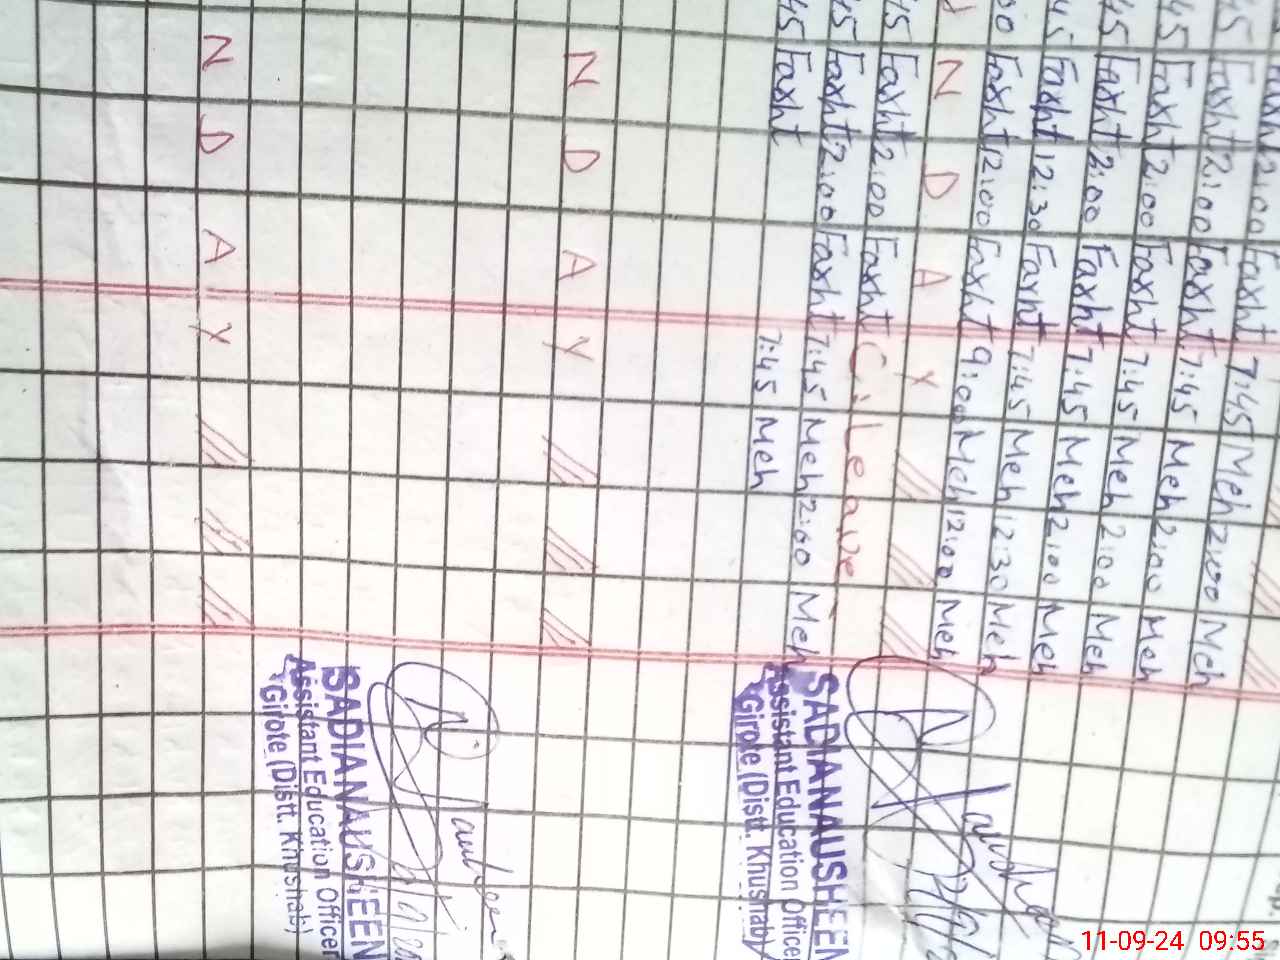 Faxht 2:00 Faxht 7:45 Meh 2:00 Meh
45 Faxht 2:00 Faxht 7:45 Meh 2:00 Meh
45 Faxht 2:00 Faxht 7:45 Meh 2:00 Meh
45 Faxht 2:00 Faxht 7:45 Meh 2:00 Meh
45 Faxht 12:30 Faxht 7:45 Meh 12:30 Meh
00 Faxht 12:00 Faxht 9:00 Meh 12:00 Meh
N D A Y
45 Faxht 2:00 Faxht C. Leave
45 Faxht 2:00 Faxht 7:45 Meh 2:00 Meh
45 Faxht 7:45 Meh
SADIA NAUSHEEN
Assistant Education Officer
Girote (Distt. Khushab)
N D A Y
SADIA NAUSHEEN
Assistant Education Officer
Girote (Distt. Khushab)
N D A Y
11-09-24 09:55